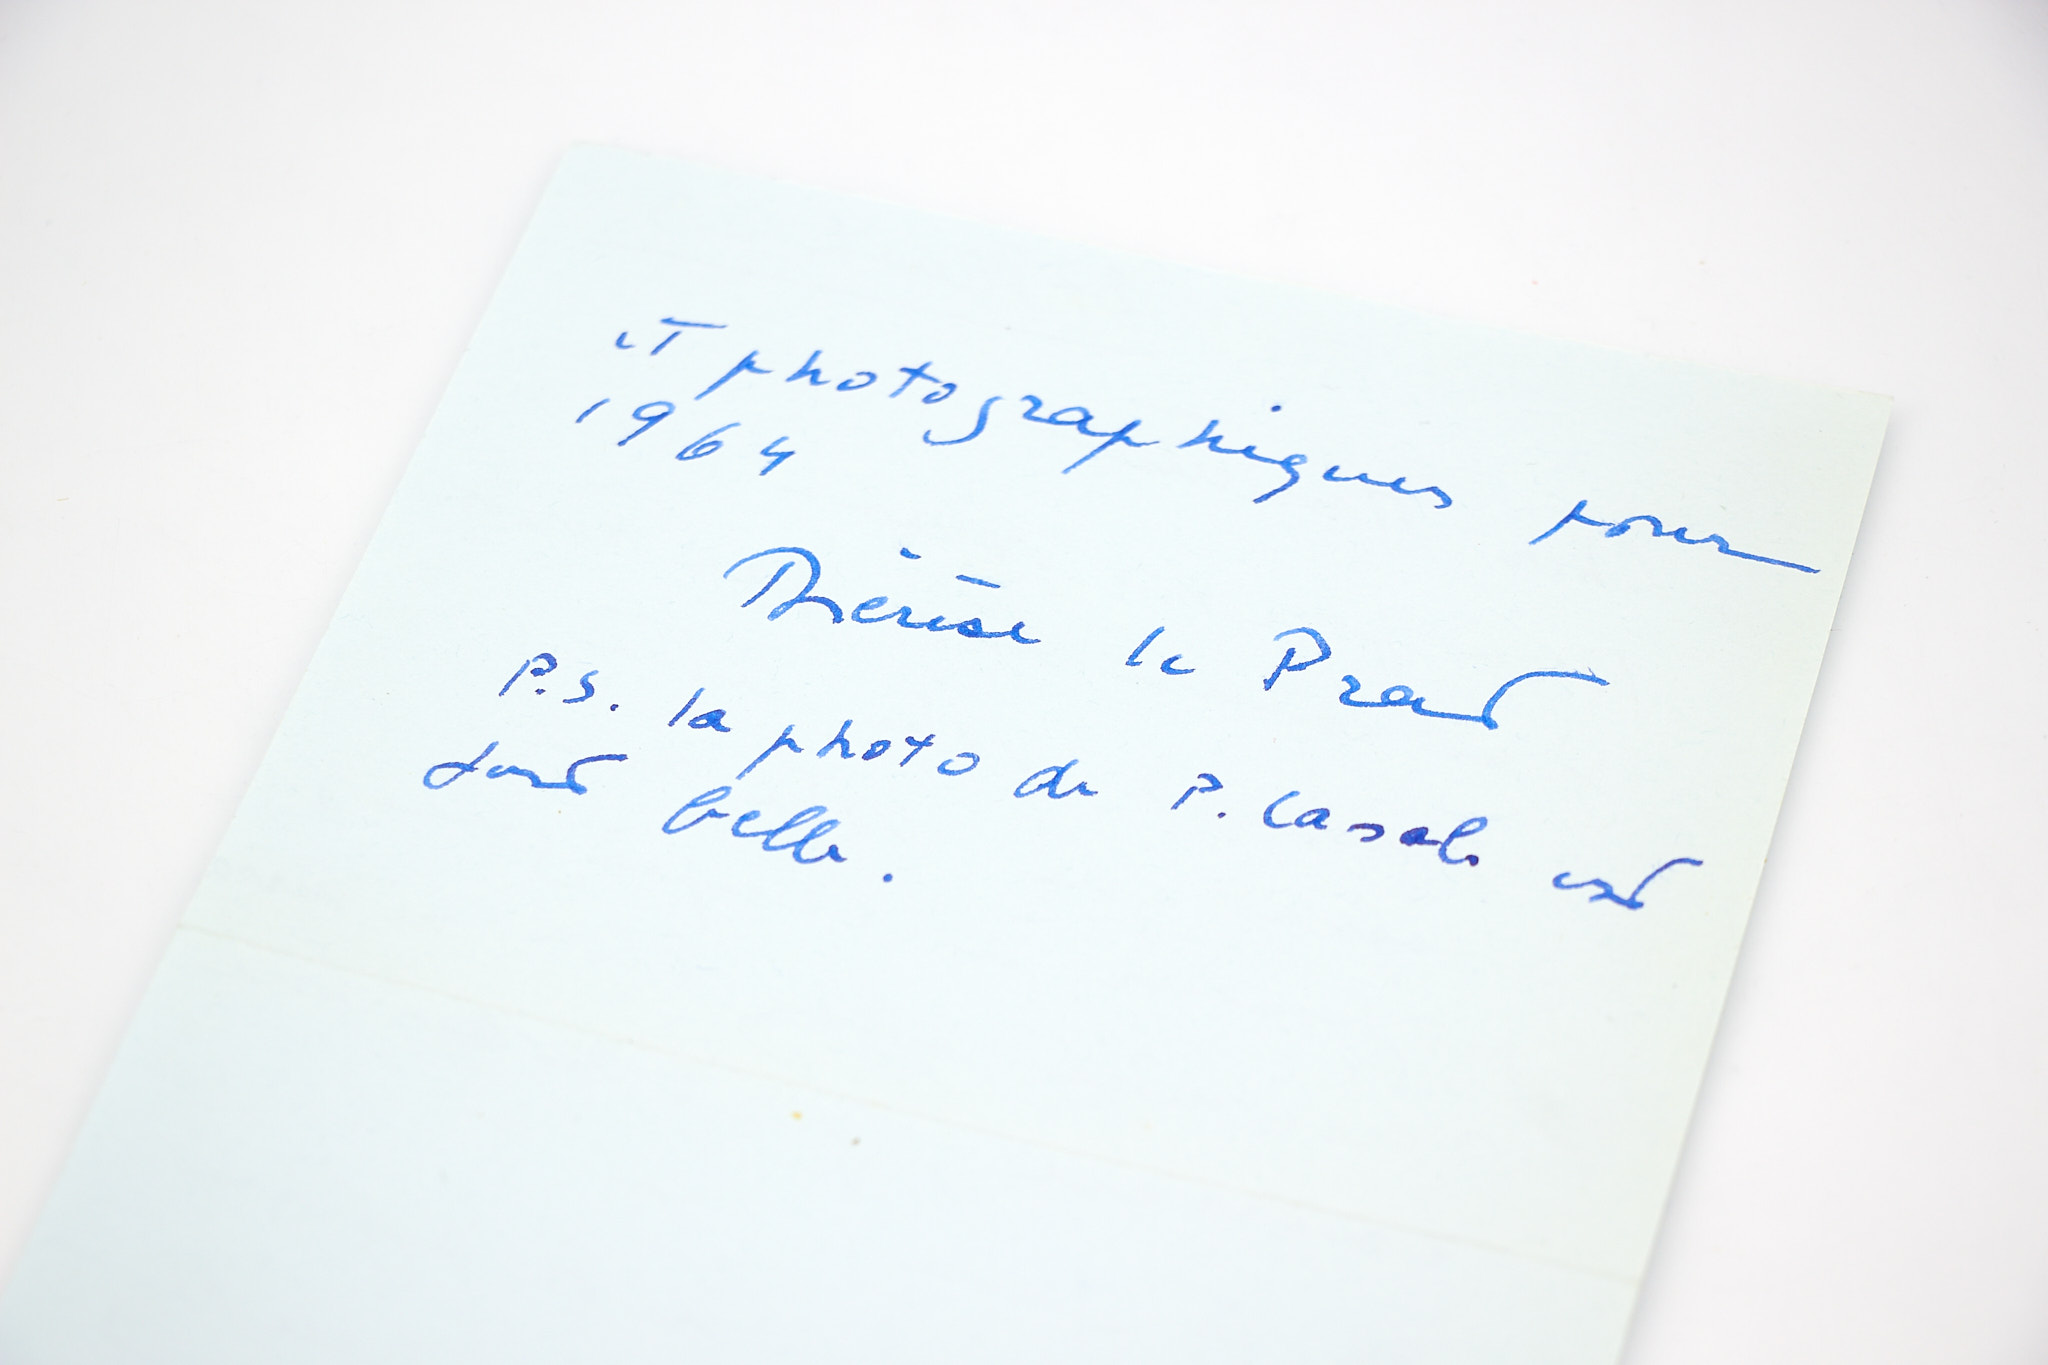 et photographiques pour
1964
Thérèse le Prat
P.S. la photo de P. Casals est
fort belle.